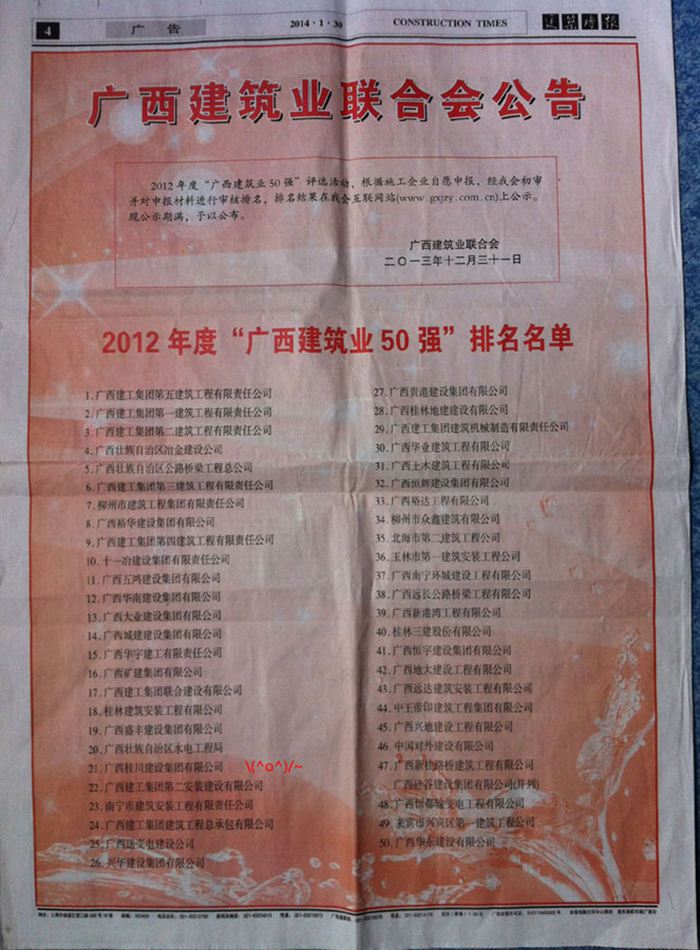 4
广 告
2014·1·30
CONSTRUCTION TIMES
建筑时报
广西建筑业联合会公告
2012 年度“广西建筑业 50 强”评选活动，根据施工企业自愿申报，经我会初审
并对申报材料进行审核排名，排名结果在我会互联网站(www.gxjzy.com.cn)上公示。
现公示期满，予以公布。
广西建筑业联合会
二〇一三年十二月三十一日
2012 年度“广西建筑业 50 强”排名名单
1. 广西建工集团第五建筑工程有限责任公司
2. 广西建工集团第一建筑工程有限责任公司
3. 广西建工集团第二建筑工程有限责任公司
4. 广西壮族自治区冶金建设公司
5. 广西壮族自治区公路桥梁工程总公司
6. 广西建工集团第三建筑工程有限责任公司
7. 柳州市建筑工程集团有限责任公司
8. 广西裕华建设集团有限公司
9. 广西建工集团第四建筑工程有限责任公司
10. 十一冶建设集团有限责任公司
11. 广西五鸿建设集团有限公司
12. 广西华南建设集团有限公司
13. 广西大业建设集团有限公司
14. 广西城建建设集团有限公司
15. 广西华宇建工有限责任公司
16. 广西矿建集团有限公司
17. 广西建工集团联合建设有限公司
18. 桂林建筑安装工程有限公司
19. 广西盛丰建设集团有限公司
20. 广西壮族自治区水电工程局
21. 广西桂川建设集团有限公司 \(^o^)/~
22. 广西建工集团第二安装建设有限公司
23. 南宁市建筑安装工程有限责任公司
24. 广西建工集团建筑工程总承包有限公司
25. 广西送变电建设公司
26. 兴华建设集团有限公司
27. 广西贵港建设集团有限公司
28. 广西桂林地建建设有限公司
29. 广西建工集团建筑机械制造有限责任公司
30. 广西华业建筑工程有限公司
31. 广西土木建筑工程有限公司
32. 广西恒辉建设集团有限公司
33. 广西裕达工程有限公司
34. 柳州市众鑫建筑有限公司
35. 北海市第二建筑工程公司
36. 玉林市第一建筑安装工程公司
37. 广西南宁环城建设工程有限公司
38. 广西远长公路桥梁工程有限公司
39. 广西新港湾工程有限公司
40. 桂林三建股份有限公司
41. 广西恒宇建设集团有限公司
42. 广西地大建设工程有限公司
43. 广西远达建筑安装工程有限公司
44. 中王帝印建筑工程集团有限公司
45. 广西兴地建设工程有限公司
46. 中国对外建设有限公司
47. 广西新桂路桥建筑工程有限公司
广西硅谷建设集团有限公司(并列)
48. 广西恒都输变电工程有限公司
49. 来宾市兴宾区第一建筑工程公司
50. 广西华东建设有限公司